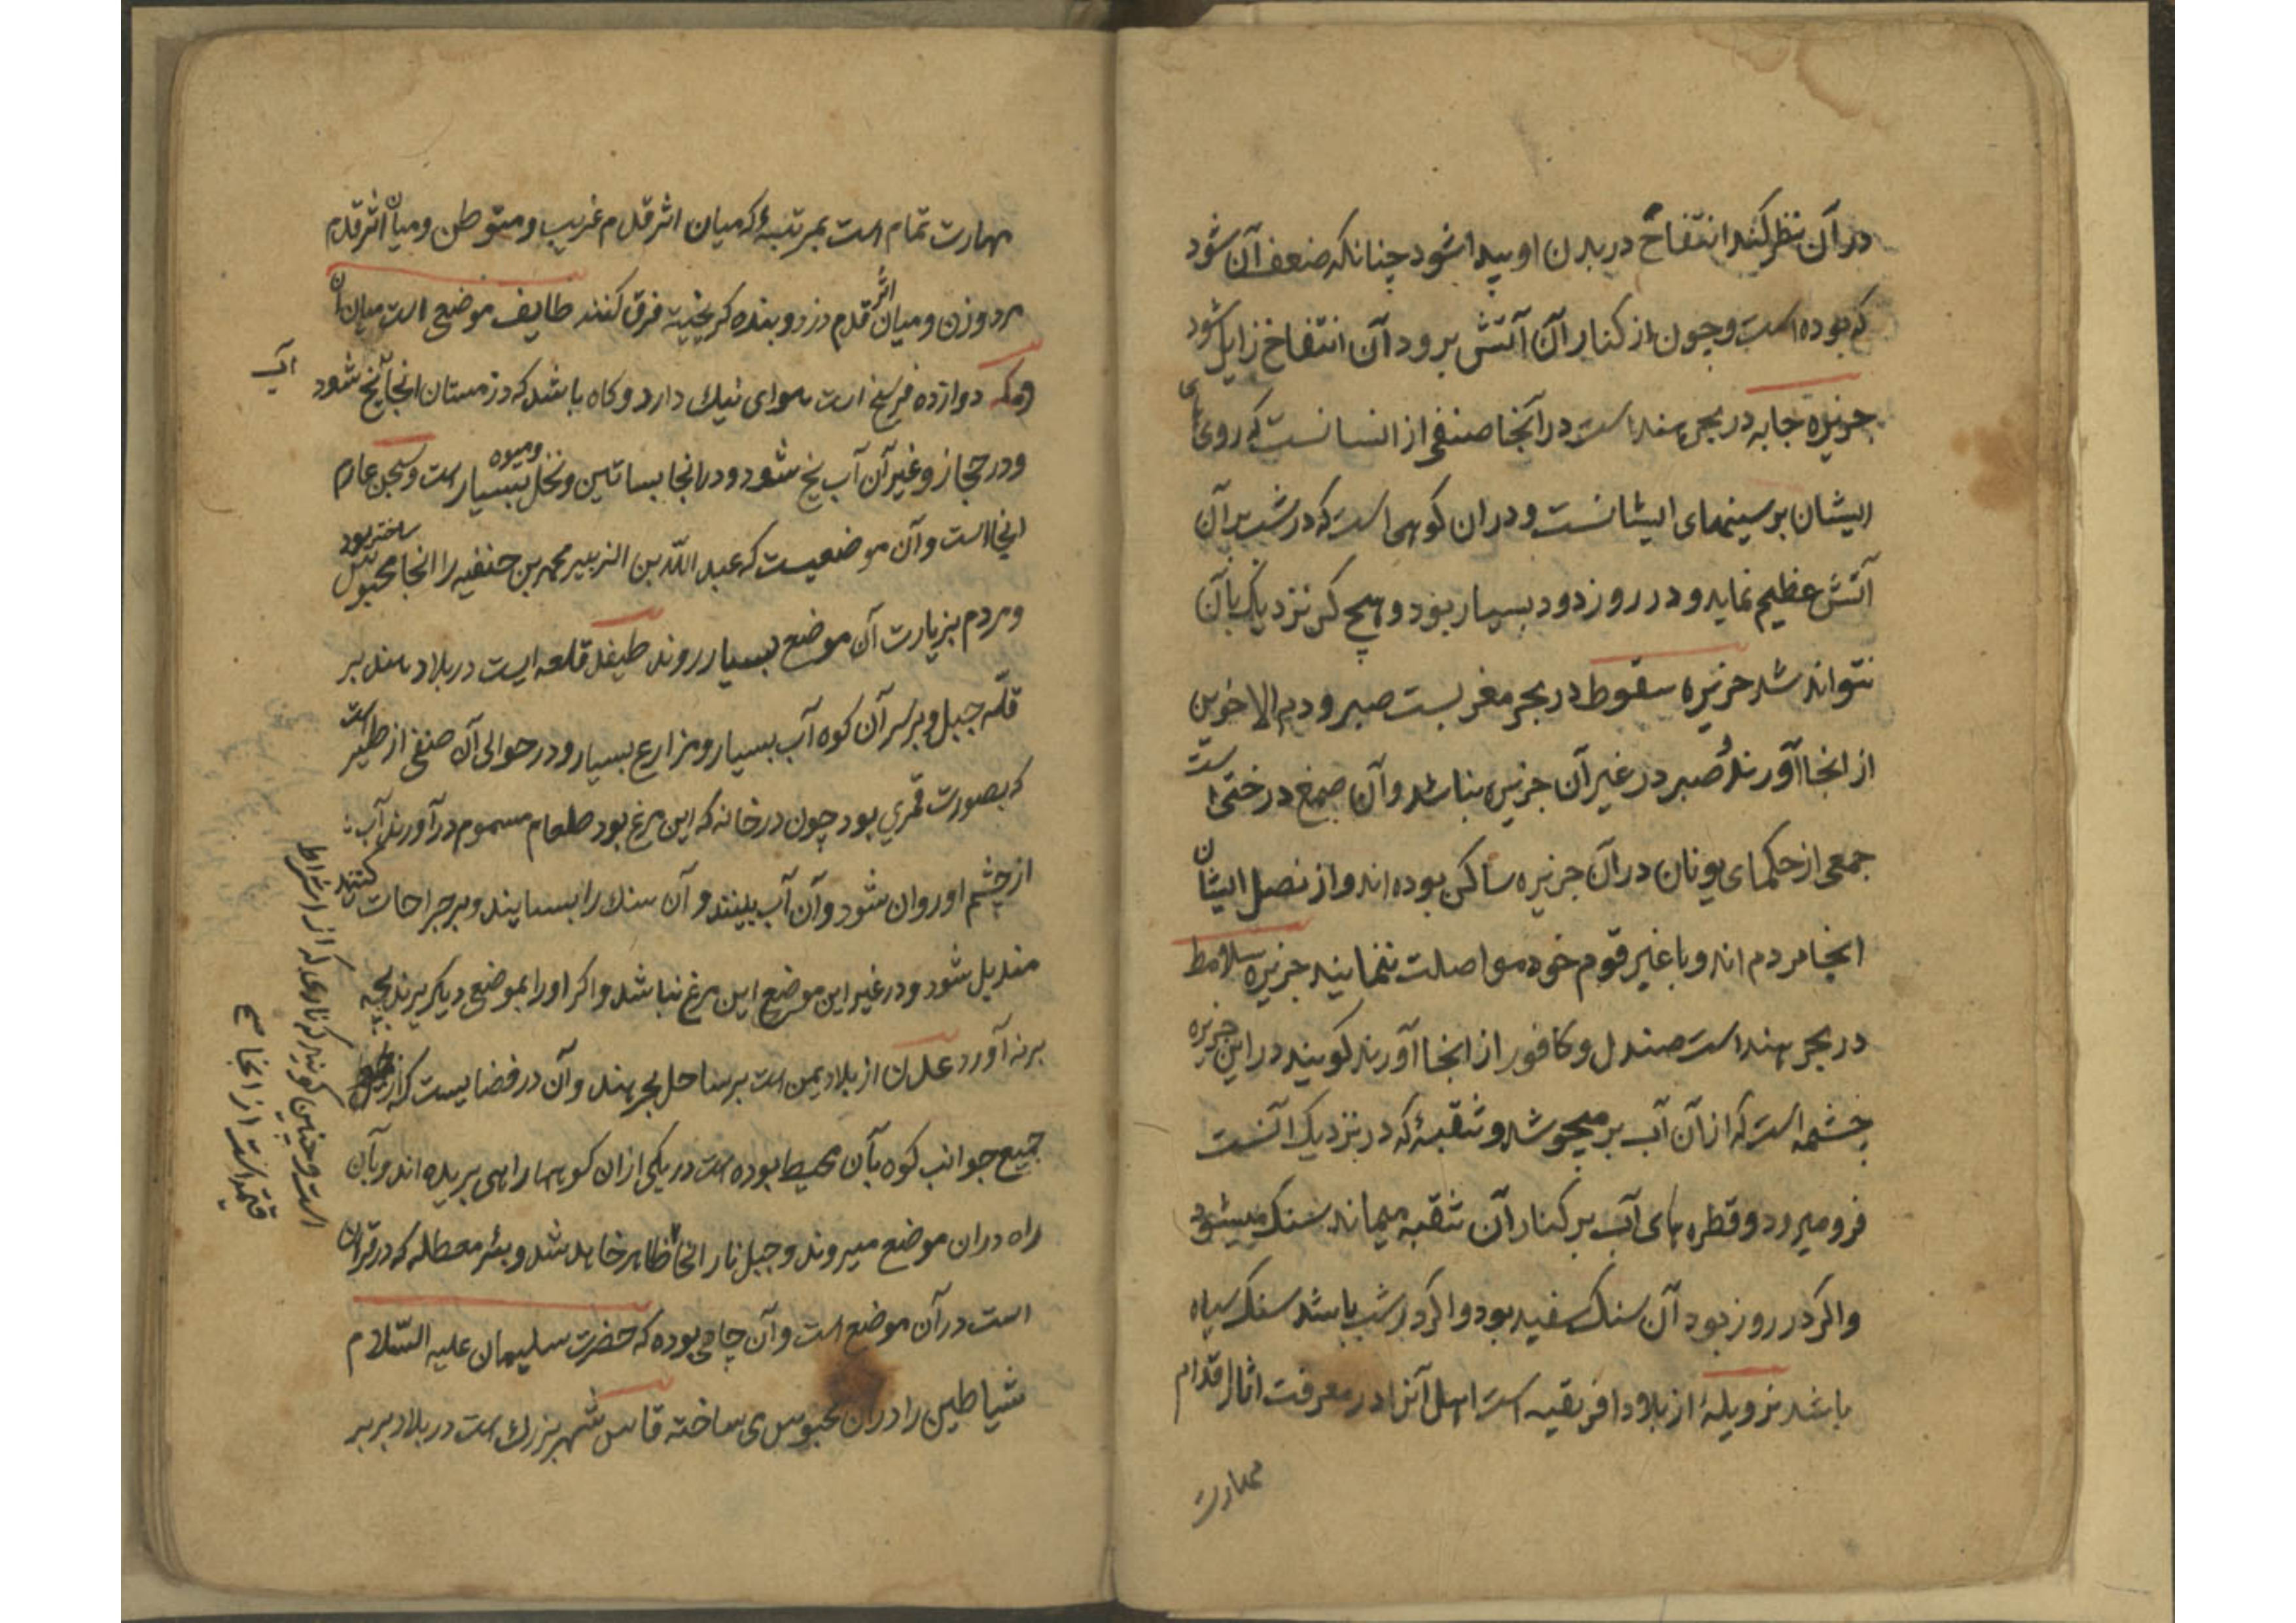 در آن نظر کند انتفاخ در بدن او پیدا شود چنانکه ضعف آن شود
که بوده است و چون از کنار آن آتش برود آن انتفاخ زایل شود
جزیره جابه در بحر هند است در آنجا صنفی از انسانست که روی‌های
ایشان بر سینهای ایشانست و در ان کوهی است که در شب بر آن
آتش عظیم نماید و در روز دود بسیار بود و هیچ کس نزدیک بآن
نتواند شد جزیره سقوط در بحر مغربست صبر و دم الاخوین
از انجا آورند و صبر در غیر آن جزیره نباشد و آن صمغ درختی است
جمعی از حکمای یونان در آن جزیره ساکن بوده اند و از نصل ایشان
انجا مردم اند و با غیر قوم خود مواصلت ننمایند جزیره سلامط
در بحر هند است صندل و کافور از انجا آورند کویند در این جزیره
چشمه است که از آن آب بر میجوشد و ثقبهٔ که در نزدیک آنست
فرو میرود و قطره های آب بر کنار آن ثقبه میماند سنک میشود
و اکر در روز بود آن سنک سفید بود و اکر در شب باشد سنک سیاه
باشد زویلهٔ از بلاد افریقیه است اهل آنرا در معرفت اثار اقدام
مهارت
مهارت تمام است بمرتبهٔ که میان اثر قدم غریب و متوطن و میان اثر قدم
مرد و زن و میان اثر قدم دزد و بنده کریخته فرق کنند طایف موضع است میان آن
و مکه دوازده فرسخ است هوای نیک دارد و کاه باشد که در زمستان انجا آب یخ شود
آب
و در حجاز و غیر آن آب یخ شود و در انجا بساتین و نخل و میوه بسیار است و سجن عارم
اینجا است و آن موضعیست که عبد الله بن الزبیر محمد بن حنفیه را انجا محبوس ساخته بود
و مردم بزیارت آن موضع بسیار روند طیفند قلعه ایست در بلاد هند بر
قلّه جبل و بر سر آن کوه آب بسیار و مزارع بسیار و در حوالی آن صنفی از طیر است
که بصورت قمری بود چون در خانه که این مرغ بود طعام مسموم در آورند آب
از چشم او روان شود و آن آب ببندد و آن سنک را بسایند و بر جراحات کنند
مندمل شود و در غیر این موضع این مرغ نباشد و اکر او را بموضع دیکر برند بچه
بر نه آورد عدن از بلاد یمن است بر ساحل بحر هند و آن در فضاییست که از
جمیع جوانب کوه بآن محیط بوده است در یکی از ان کوهها راهی بریده اند و بآن
راه در ان موضع میروند و جبل نار انجا ظاهر خاهد شد و بئر معطله که در قران
است در آن موضع است و آن چاهی بوده که حضرت سلیمان علیه السّلام
شیاطین را در ان محبوس می ساخته قاس شهر بزرك است در بلاد بربر
کویند که ناری که از اشراط
است و چنین
از انجا